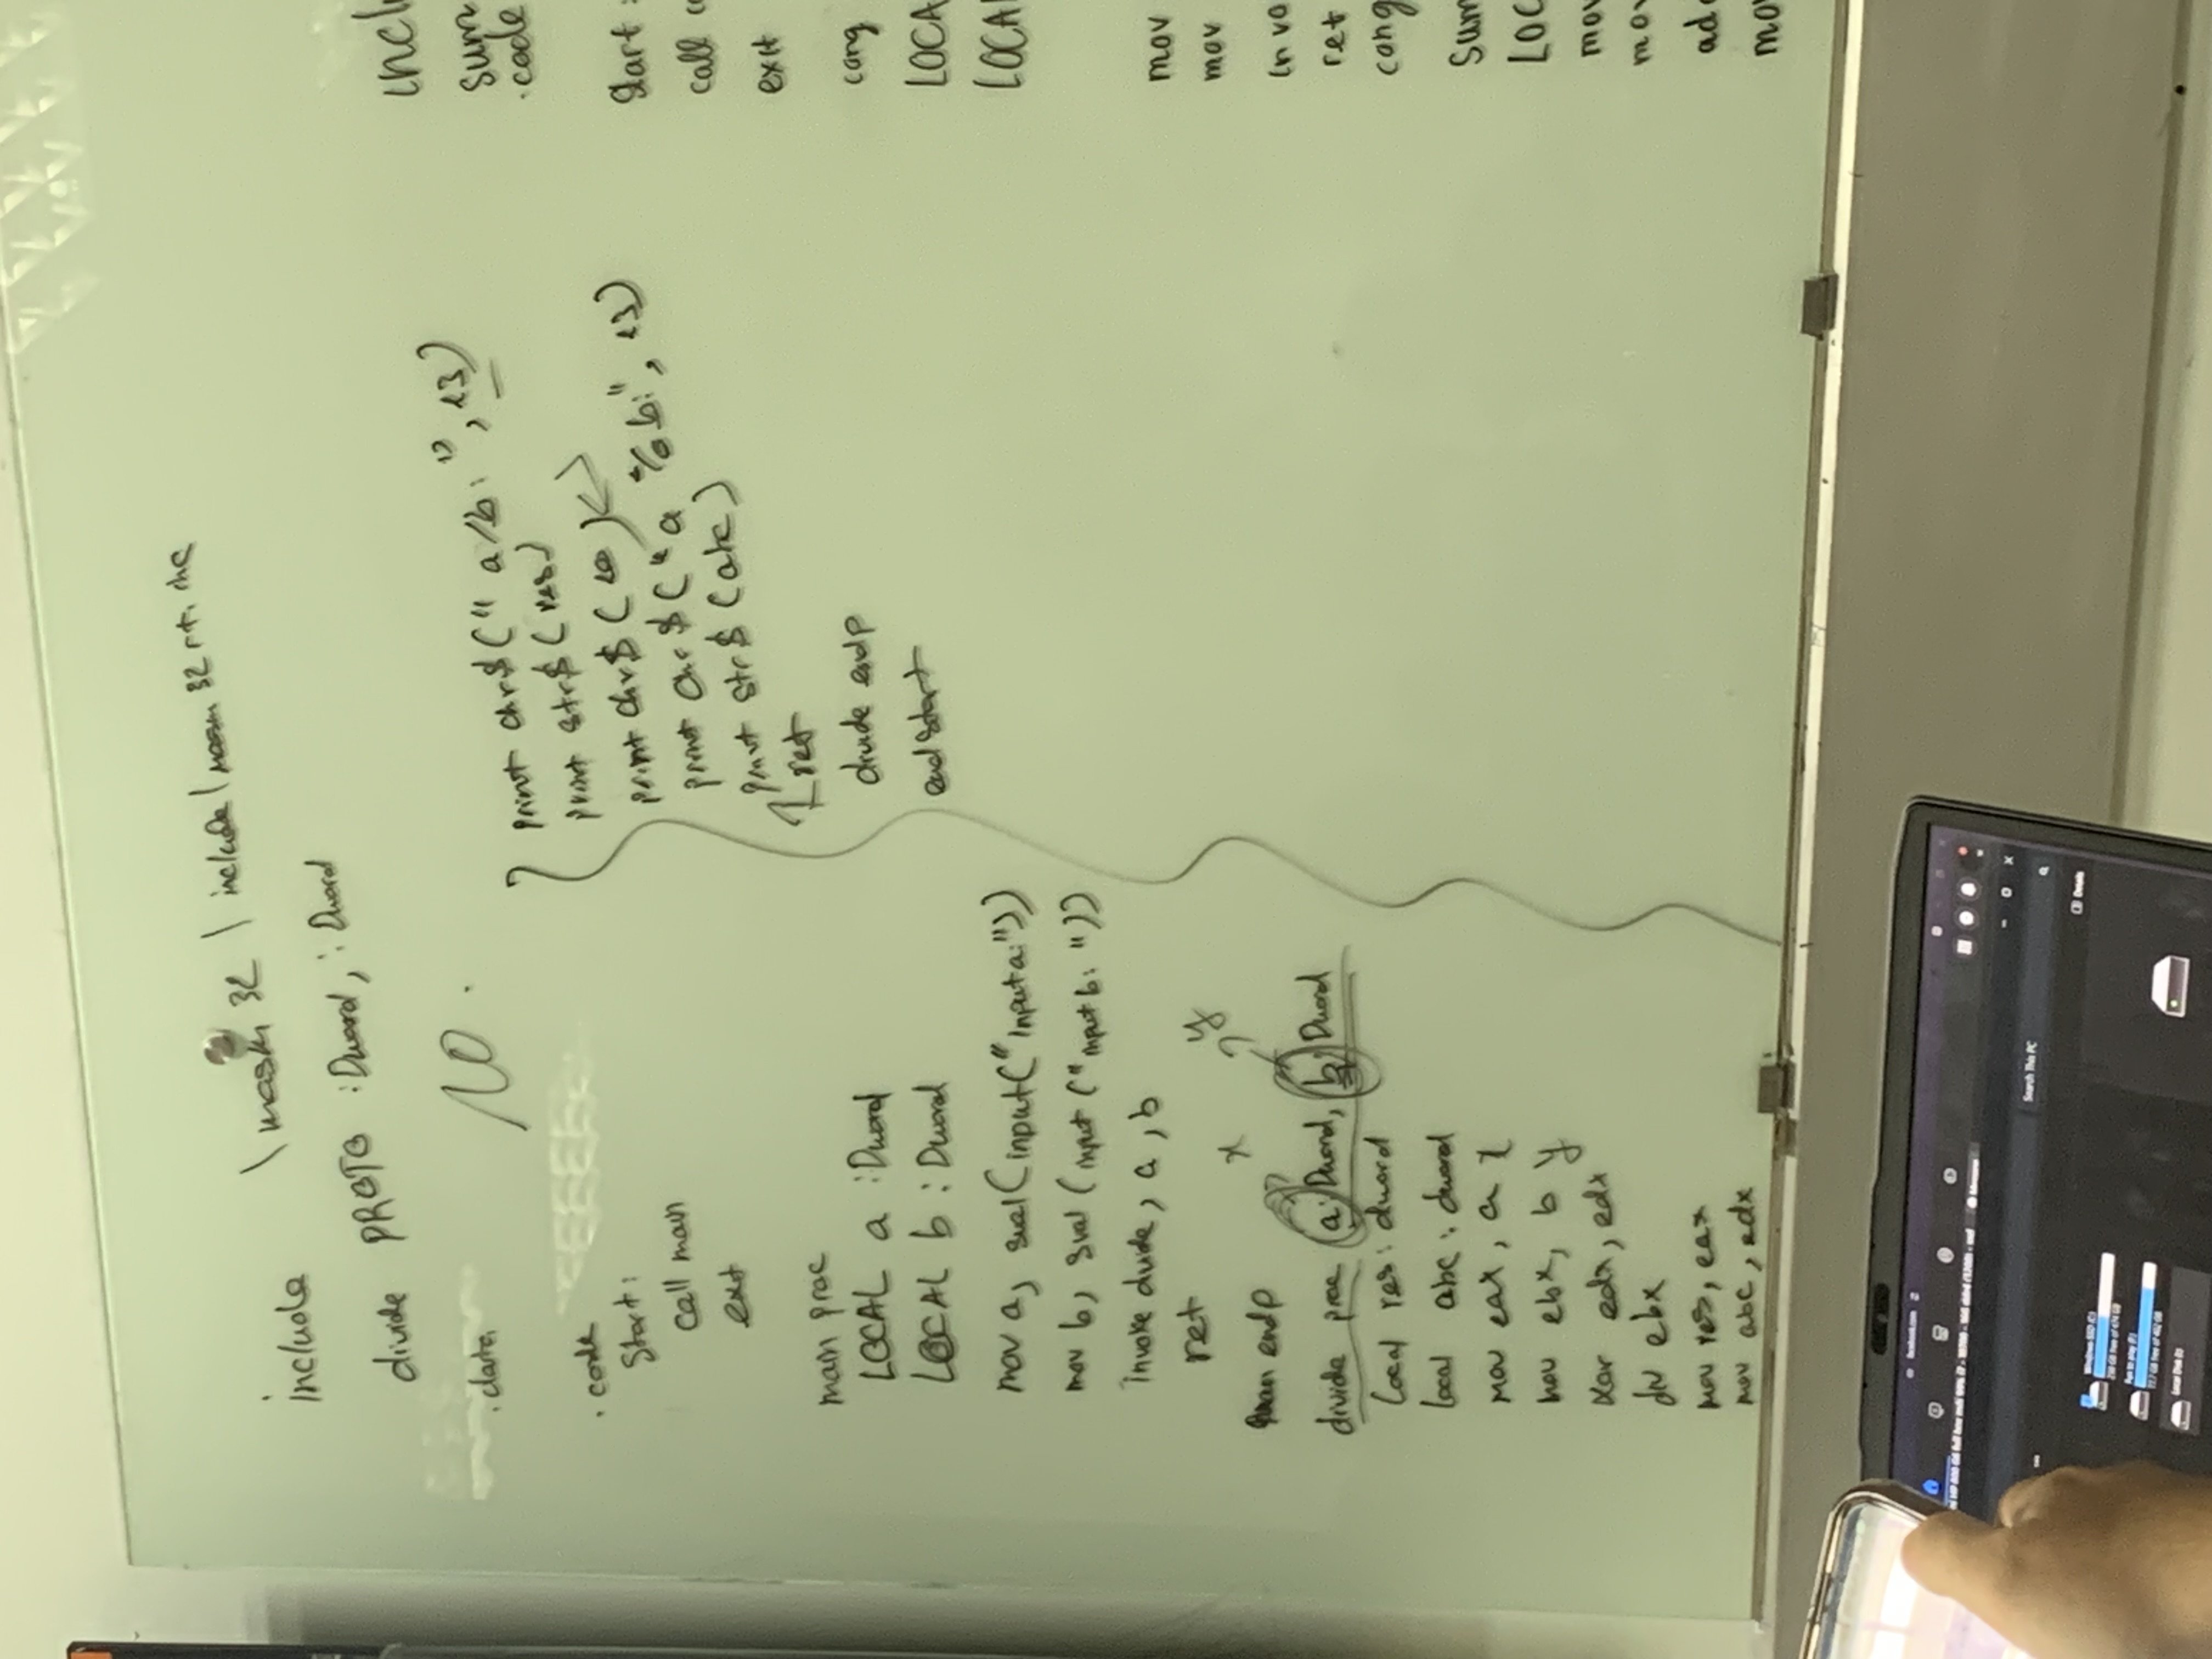 include \masm32\include\masm32rt.inc
divide PROTO :Dword, :Dword
.data
10.
.code
Start:
call main
exit
main proc
LOCAL a :Dword
LOCAL b : Dword
mov a, sval(input("input a:"))
mov b, sval (input ("input b: "))
invoke divide, a, b
ret
main endp
x y
divide proc a: Dword, b: Dword
Local res: dword
local abc : dword
mov eax, a x
mov ebx, b y
xor edx, edx
div ebx
mov res, eax
mov abc, edx
print chr$(" a/b: ", 13)
print str$ (res)
print chr$ (10)
print chr$ ("a % b:", 13)
print str$ (abc)
ret
divide endp
end start
incl
sum
.code
start :
call c
exit
cong
LOCA
LOCAL
mov
mov
invo
ret
cong
Sum
LOC
mov
mov
ad
mov
facebook.com
Search This PC
Details
Windows-SSD (C:)
Fun to play (F:)
Local Disk